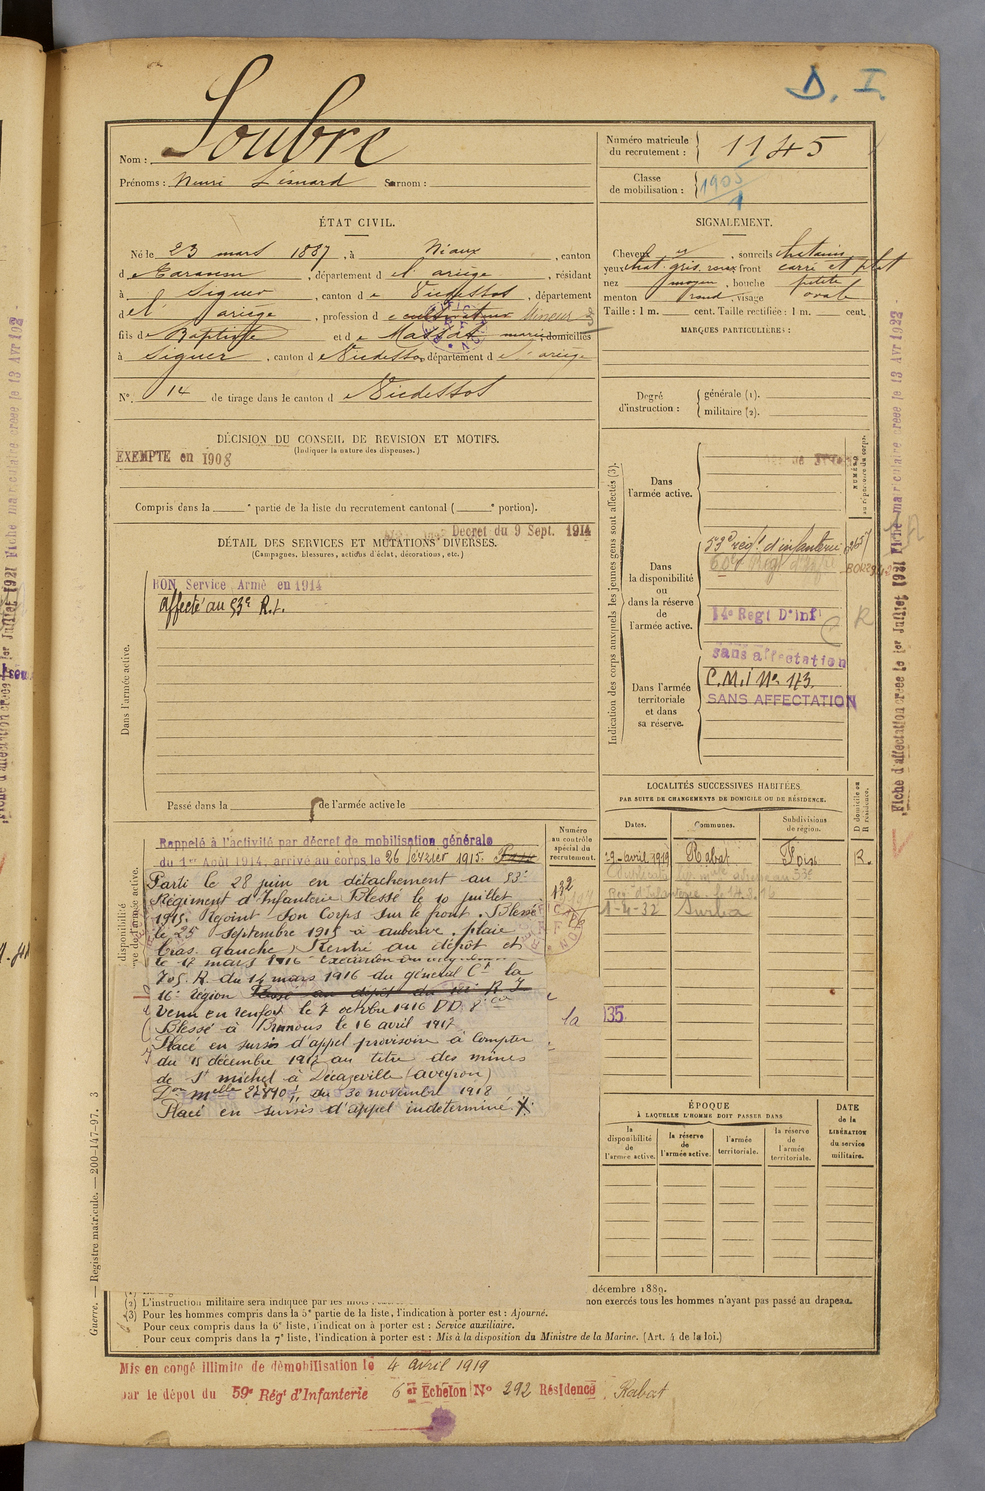 D. I.
Nom : Soubre
Prénoms : Surnom :
Numéro matricule du recrutement : 1145
Classe de mobilisation : 1905
ÉTAT CIVIL.
Né le 23 mars 1887, à Niaux, canton
d e Tarascon, département d e l'ariège, résidant
à Siguer, canton d e Vicdessos, département
d e l' ariège, profession d e cultivateur Mineur
fils d e Baptiste et d e domiciliés
à Siguer, canton d e Vicdessos, département d e l'ariège
N° 14 de tirage dans le canton d e Vicdessos
SIGNALEMENT.
Cheveux et, sourcils chatains
yeux chat. gris. front carré et plat
nez moyen, bouche petite
menton rond, visage ovale
Taille : 1 m. cent. Taille rectifiée : 1 m. cent.
MARQUES PARTICULIÈRES :
Degré d'instruction : générale (1).
militaire (2).
DÉCISION DU CONSEIL DE REVISION ET MOTIFS.
(Indiquer la nature des dispenses.)
EXEMPTÉ en 1908
Compris dans la ° partie de la liste du recrutement cantonal ( ° portion).
Décret du 9 Sept. 1914
DÉTAIL DES SERVICES ET MUTATIONS DIVERSES.
(Campagnes, blessures, actions d'éclat, décorations, etc.)
Dans l'armée active.
BON Service Armé en 1914
affecté au 53e R.I.
Passé dans la de l'armée active le
Indication des corps auxquels les jeunes gens sont affectés (3).
NUMÉRO
au répertoire du corps.
Dans l'armée active.
Dans la disponibilité ou dans la réserve de l'armée active.
53e rég.t d'infanterie
14e Regt D'Inf
sans affectation
Dans l'armée territoriale et dans sa réserve.
C.M.I No 173.
SANS AFFECTATION
LOCALITÉS SUCCESSIVES HABITÉES
PAR SUITE DE CHANGEMENTS DE DOMICILE OU DE RÉSIDENCE.
D domicile ou R résidence.
Dates. Communes. Subdivisions de région.
avril 1919 Rabat Foix R.
1-4-32 Surba
Numéro au contrôle spécial du recrutement.
132
la 135
Rappelé à l'activité par décret de mobilisation générale
du 1er Août 1914, arrivé au corps le 26 février 1915.
Parti le 28 juin en détachement au 53e
Régiment d'Infanterie Blessé le 10 juillet
1915. Rejoint son Corps sur le front. Blessé
le 25 septembre 1915 à auberive. plaie
bras gauche. Rentré au dépôt et
le 17 mars 1916
R. du 14 mars 1916 du général Ct la
16e région
Venu en renfort le 7 octobre 1916
Blessé à le 16 avril 1917
Placé en sursis d'appel provisoire à compter
du 15 décembre 1917 au titre des mines
de St michel à Décazeville (aveyron)
du 30 novembre 1918
Placé en sursis d'appel indéterminé
ÉPOQUE
À LAQUELLE L'HOMME DOIT PASSER DANS
la disponibilité de l'armée active.
la réserve de l'armée active.
l'armée territoriale.
la réserve de l'armée territoriale.
DATE de la LIBÉRATION du service militaire.
décembre 1889.
(2) L'instruction militaire sera indiquée par les mots
non exercés tous les hommes n'ayant pas passé au drapeau.
(3) Pour les hommes compris dans la 5e partie de la liste, l'indication à porter est : Ajourné.
Pour ceux compris dans la 6e liste, l'indication à porter est : Service auxiliaire.
Pour ceux compris dans la 7e liste, l'indication à porter est : Mis à la disposition du Ministre de la Marine. (Art. 4 de la loi.)
Guerre. — Registre matricule. — 200-147-97. 3
Mis en congé illimité de démobilisation le 4 avril 1919
par le dépot du 59e Régt d'Infanterie 6 er Echelon No 292 Résidence Rabat
Fiche d'affectation créée le 1er Juillet 1921 Fiche matriculaire créée le 13 Avr 1922